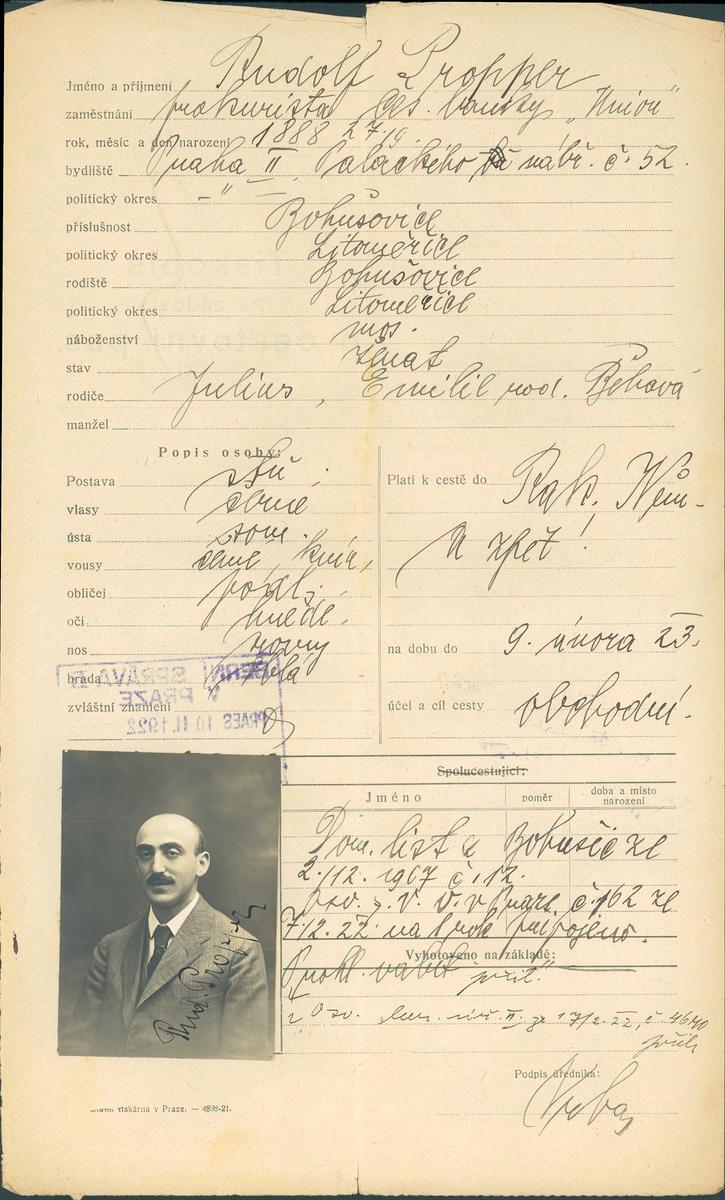 Jméno a příjmení Rudolf Propper
zaměstnání prokurista Čes. banky „Union"
rok, měsíc a den narození 1888 27/9
bydliště Praha II. Palackého nábř. č. 52.
politický okres – " –
příslušnost Bohušovice
politický okres Litoměřice
rodiště Bohušovice
politický okres Litoměřice
náboženství mos.
stav ženat
rodiče Julius, Emilie roz.
manžel
Popis osoby:
Postava stř.
vlasy černé
ústa soum.
vousy černé, knír,
obličej podl.
oči hnědé
nos rovný
brada
zvláštní znamení
BERNÍ SPRÁVA II
V PRAZE
PRAES 10 II. 1922
Platí k cestě do Rak. Něm.
a zpět!
na dobu do 9. února 23.
účel a cíl cesty obchodní.
Spolucestující:
Jméno poměr doba a místo narození
Dom. list z Bohušic ze
2./12. 1907 č. 12.
v Praze č. 162 ze
na 1 rok připojeno.
Vyhotoveno na základě:
Rud. Propper
II. č. 4640
Podpis úředníka:
Státní tiskárna v Praze. — 4898-21.